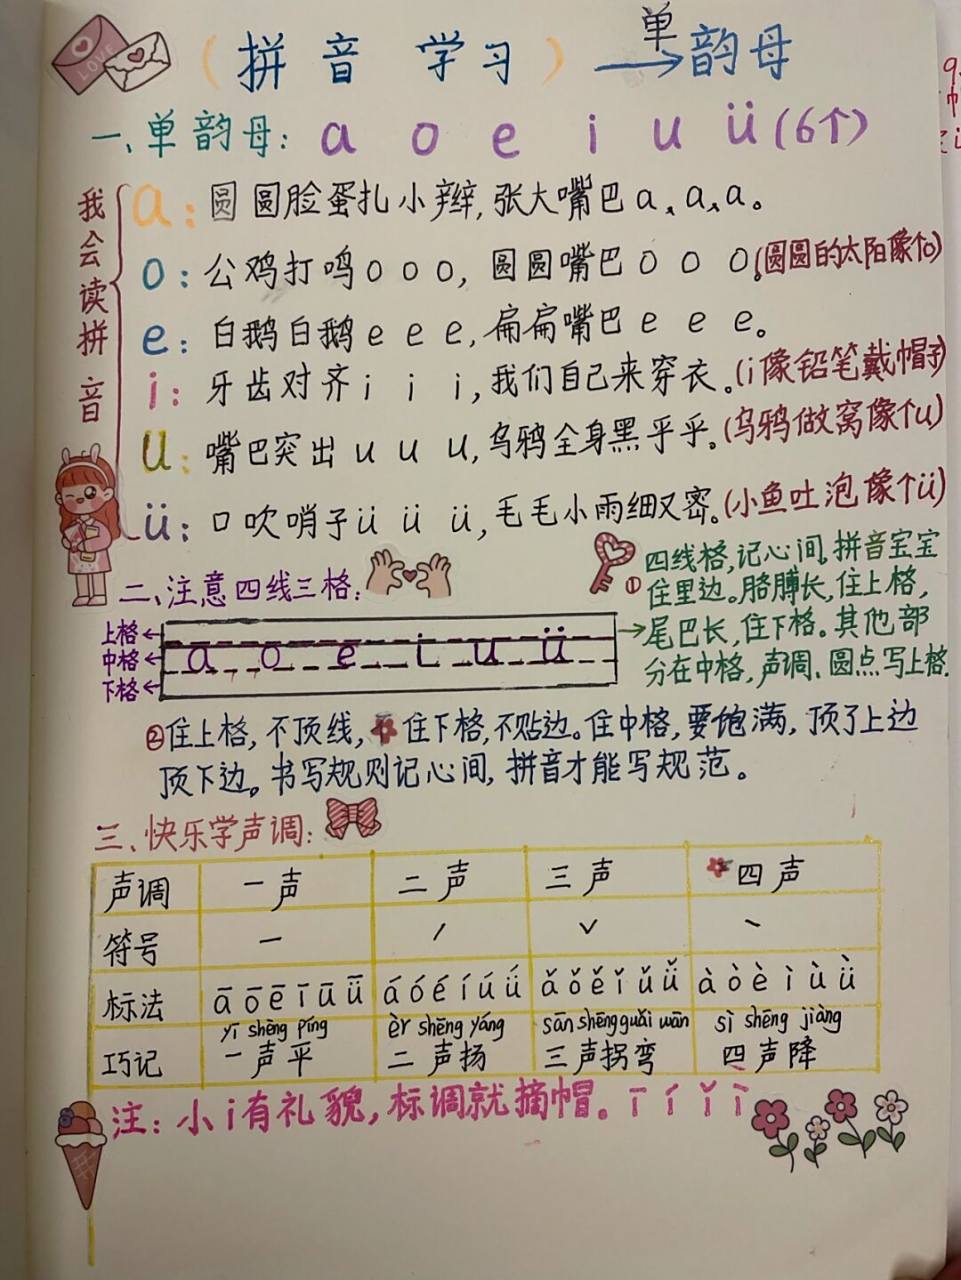 (拼音 学习) → 单韵母
一、单韵母: a o e i u ü(6个)
我会读拼音
a: 圆圆脸蛋扎小辫,张大嘴巴a、a、a。
o: 公鸡打鸣o o o, 圆圆嘴巴o o o。(圆圆的太阳像个o)
e: 白鹅白鹅e e e,扁扁嘴巴e e e。
i: 牙齿对齐i i i,我们自己来穿衣。(i像铅笔戴帽子)
u: 嘴巴突出u u u,乌鸦全身黑乎乎。(乌鸦做窝像个u)
ü: 口吹哨子ü ü ü,毛毛小雨细又密。(小鱼吐泡像个ü)
二、注意四线三格:
上格←
中格←
下格←
a o e i u ü
①四线格,记心间,拼音宝宝
住里边。胳膊长,住上格,
尾巴长,住下格。其他部
分在中格,声调、圆点写上格.
②住上格,不顶线,住下格,不贴边。住中格,要饱满,顶了上边
顶下边。书写规则记心间,拼音才能写规范。
三、快乐学声调:
声调 一声 二声 三声 四声
符号 ˉ ˊ ˇ ˋ
标法 ā ō ē ī ū ǖ á ó é í ú ǘ ǎ ǒ ě ǐ ǔ ǚ à ò è ì ù ǜ
yī shēng píng èr shēng yáng sān shēng guǎi wān sì shēng jiàng
巧记 一声平 二声扬 三声拐弯 四声降
注: 小i有礼貌,标调就摘帽。ī í ǐ ì
LOVE